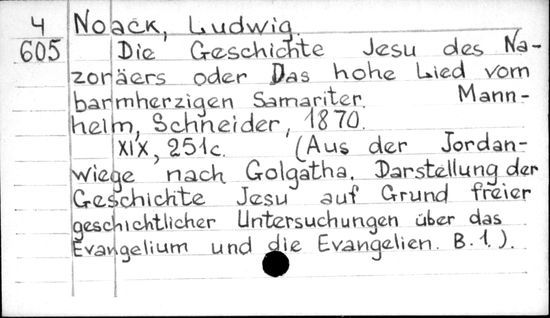 4 Noack, Ludwig.
605 Die Geschichte Jesu des Na-
zoräers oder Das hohe Lied vom
barmherzigen Samariter. Mann-
heim, Schneider, 1870.
XIX, 251c. (Aus der Jordan-
wiege nach Golgatha. Darstellung der
Geschichte Jesu auf Grund freier
geschichtlicher Untersuchungen über das
Evangelium und die Evangelien. B.1.).